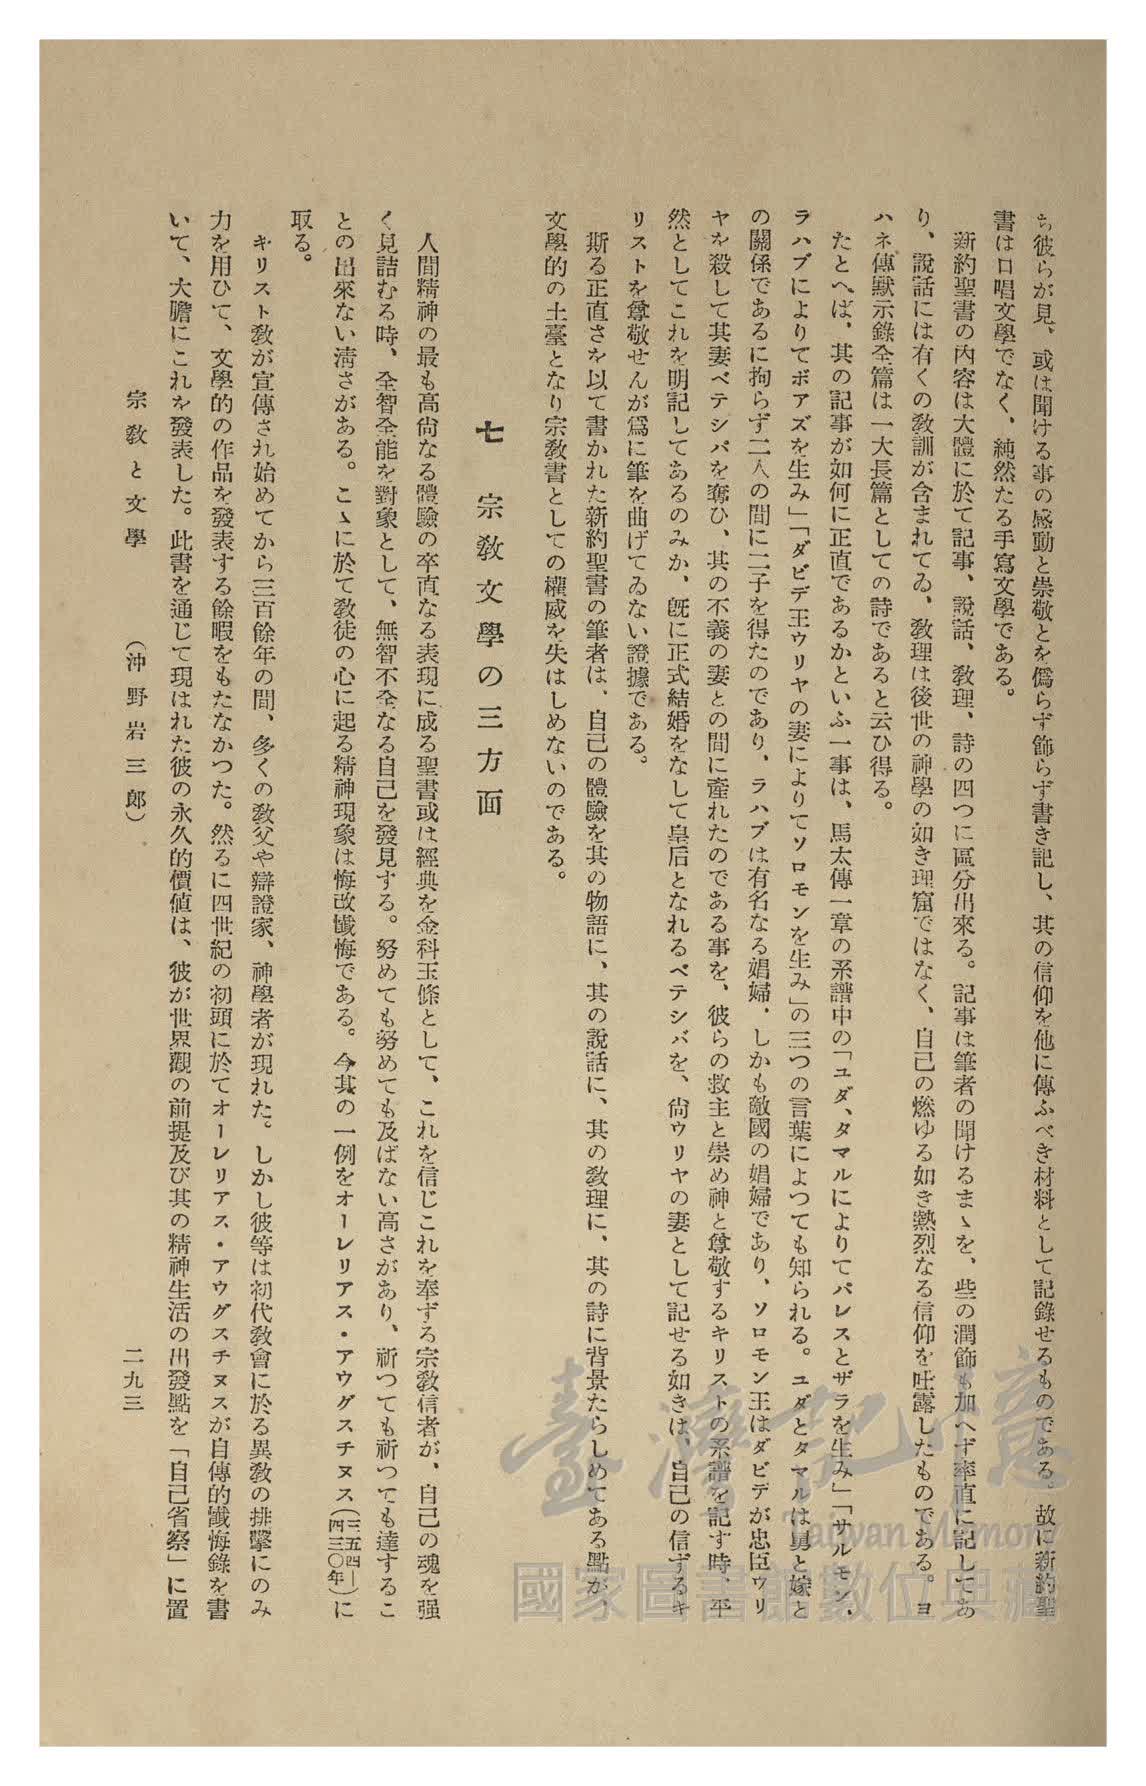 ち彼らが見、或は聞ける事の感動と崇敬とを僞らず飾らず書き記し、其の信仰を他に傳ふべき材料として記錄せるものである。故に新約聖
書は口唱文學でなく、純然たる手寫文學である。
新約聖書の内容は大體に於て記事、說話、敎理、詩の四つに區分出來る。記事は筆者の聞けるまゝを、些の潤飾も加へず率直に記してあ
り、說話には有くの敎訓が含まれてゐ、敎理は後世の神學の如き理窟ではなく、自己の燃ゆる如き熱烈なる信仰を吐露したものである。ヨ
ハネ傳默示錄全篇は一大長篇としての詩であると云ひ得る。
たとへば、其の記事が如何に正直であるかといふ一事は、馬太傳一章の系譜中の「ユダ、タマルによりてパレスとザラを生み」「サルモン、
ラハブによりてボアズを生み」「ダビデ王ウリヤの妻によりてソロモンを生み」の三つの言葉によつても知られる。ユダとタマルは舅と嫁と
の關係であるに拘らず二人の間に二子を得たのであり、ラハブは有名なる娼婦、しかも敵國の娼婦であり、ソロモン王はダビデが忠臣ウリ
ヤを殺して其妻ベテシバを奪ひ、其の不義の妻との間に產れたのである事を、彼らの救主と崇め神と尊敬するキリストの系譜を記す時、平
然としてこれを明記してあるのみか、旣に正式結婚をなして皇后となれるベテシバを、尙ウリヤの妻として記せる如きは、自己の信ずるキ
リストを尊敬せんが爲に筆を曲げてゐない證據である。
斯る正直さを以て書かれた新約聖書の筆者は、自己の體驗を其の物語に、其の說話に、其の敎理に、其の詩に背景たらしめてある點が、
文學的の土臺となり宗敎書としての權威を失はしめないのである。
七 宗敎文學の三方面
人間精神の最も高尙なる體驗の卒直なる表現に成る聖書或は經典を金科玉條として、これを信じこれを奉ずる宗敎信者が、自己の魂を强
く見詰むる時、全智全能を對象として、無智不全なる自己を發見する。努めても努めても及ばない高さがあり、祈つても祈つても達するこ
との出來ない淸さがある。こゝに於て敎徒の心に起る精神現象は悔改懺悔である。今其の一例をオーレリアス・アウグスチヌス(三五四—四三〇年)に
取る。
キリスト敎が宣傳され始めてから三百餘年の間、多くの敎父や辯證家、神學者が現れた。しかし彼等は初代敎會に於る異敎の排擊にのみ
力を用ひて、文學的の作品を發表する餘暇をもたなかつた。然るに四世紀の初頭に於てオーレリアス・アウグスチヌスが自傳的懺悔錄を書
いて、大膽にこれを發表した。此書を通じて現はれた彼の永久的價値は、彼が世界觀の前提及び其の精神生活の出發點を「自己省察」に置
宗敎と文學 (沖野岩三郞) 二九三
臺灣記憶
Taiwan Memory
國家圖書館數位典藏